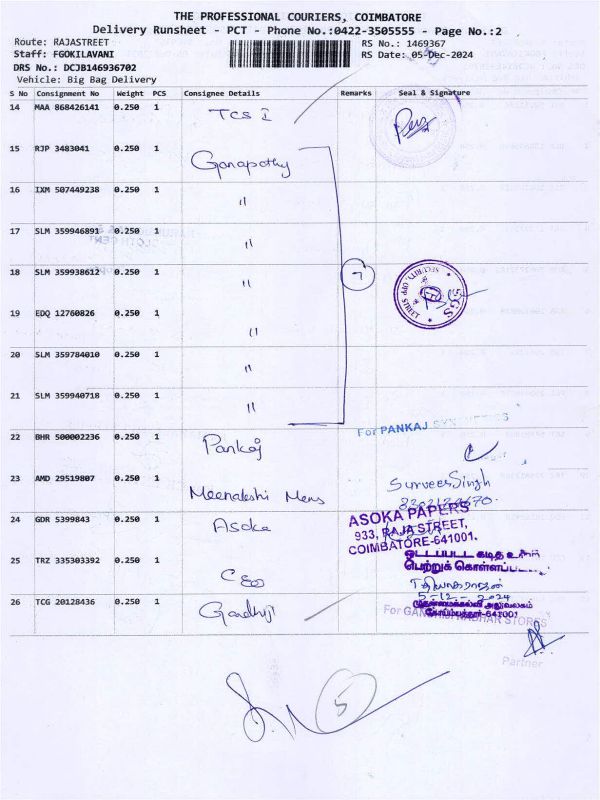 THE PROFESSIONAL COURIERS, COIMBATORE
Delivery Runsheet - PCT - Phone No.:0422-3505555 - Page No.:2
Route: RAJASTREET RS No.: 1469367
Staff: FGOKILAVANI RS Date: 05-Dec-2024
DRS No.: DCJB146936702
Vehicle: Big Bag Delivery
S No Consignment No Weight PCS Consignee Details Remarks Seal & Signature
14 MAA 868426141 0.250 1 TCS I
15 RJP 3483041 0.250 1 Ganapathy
16 IXM 507449238 0.250 1 "
17 SLM 359946891 0.250 1 "
18 SLM 359938612 0.250 1 " 7
SECURITY, OPP STREET SGS
19 EDQ 12760826 0.250 1 "
20 SLM 359784010 0.250 1 "
21 SLM 359940718 0.250 1 "
For PANKAJ SYNTHETICS
22 BHR 500002236 0.250 1 Pankaj
23 AMD 29519807 0.250 1 Meenakshi Mens
Surveer Singh
24 GDR 5399843 0.250 1 Asoka
ASOKA PAPERS
933, RAJA STREET,
COIMBATORE-641001.
25 TRZ 335303392 0.250 1 CEO
பெற்றுக் கொள்ளப்பட்டது
5-12-2024
முதன்மைக்கல்வி அலுவலகம்
கோயம்புத்தூர்-641001
26 TCG 20128436 0.250 1 Gandhiji
Partner
5